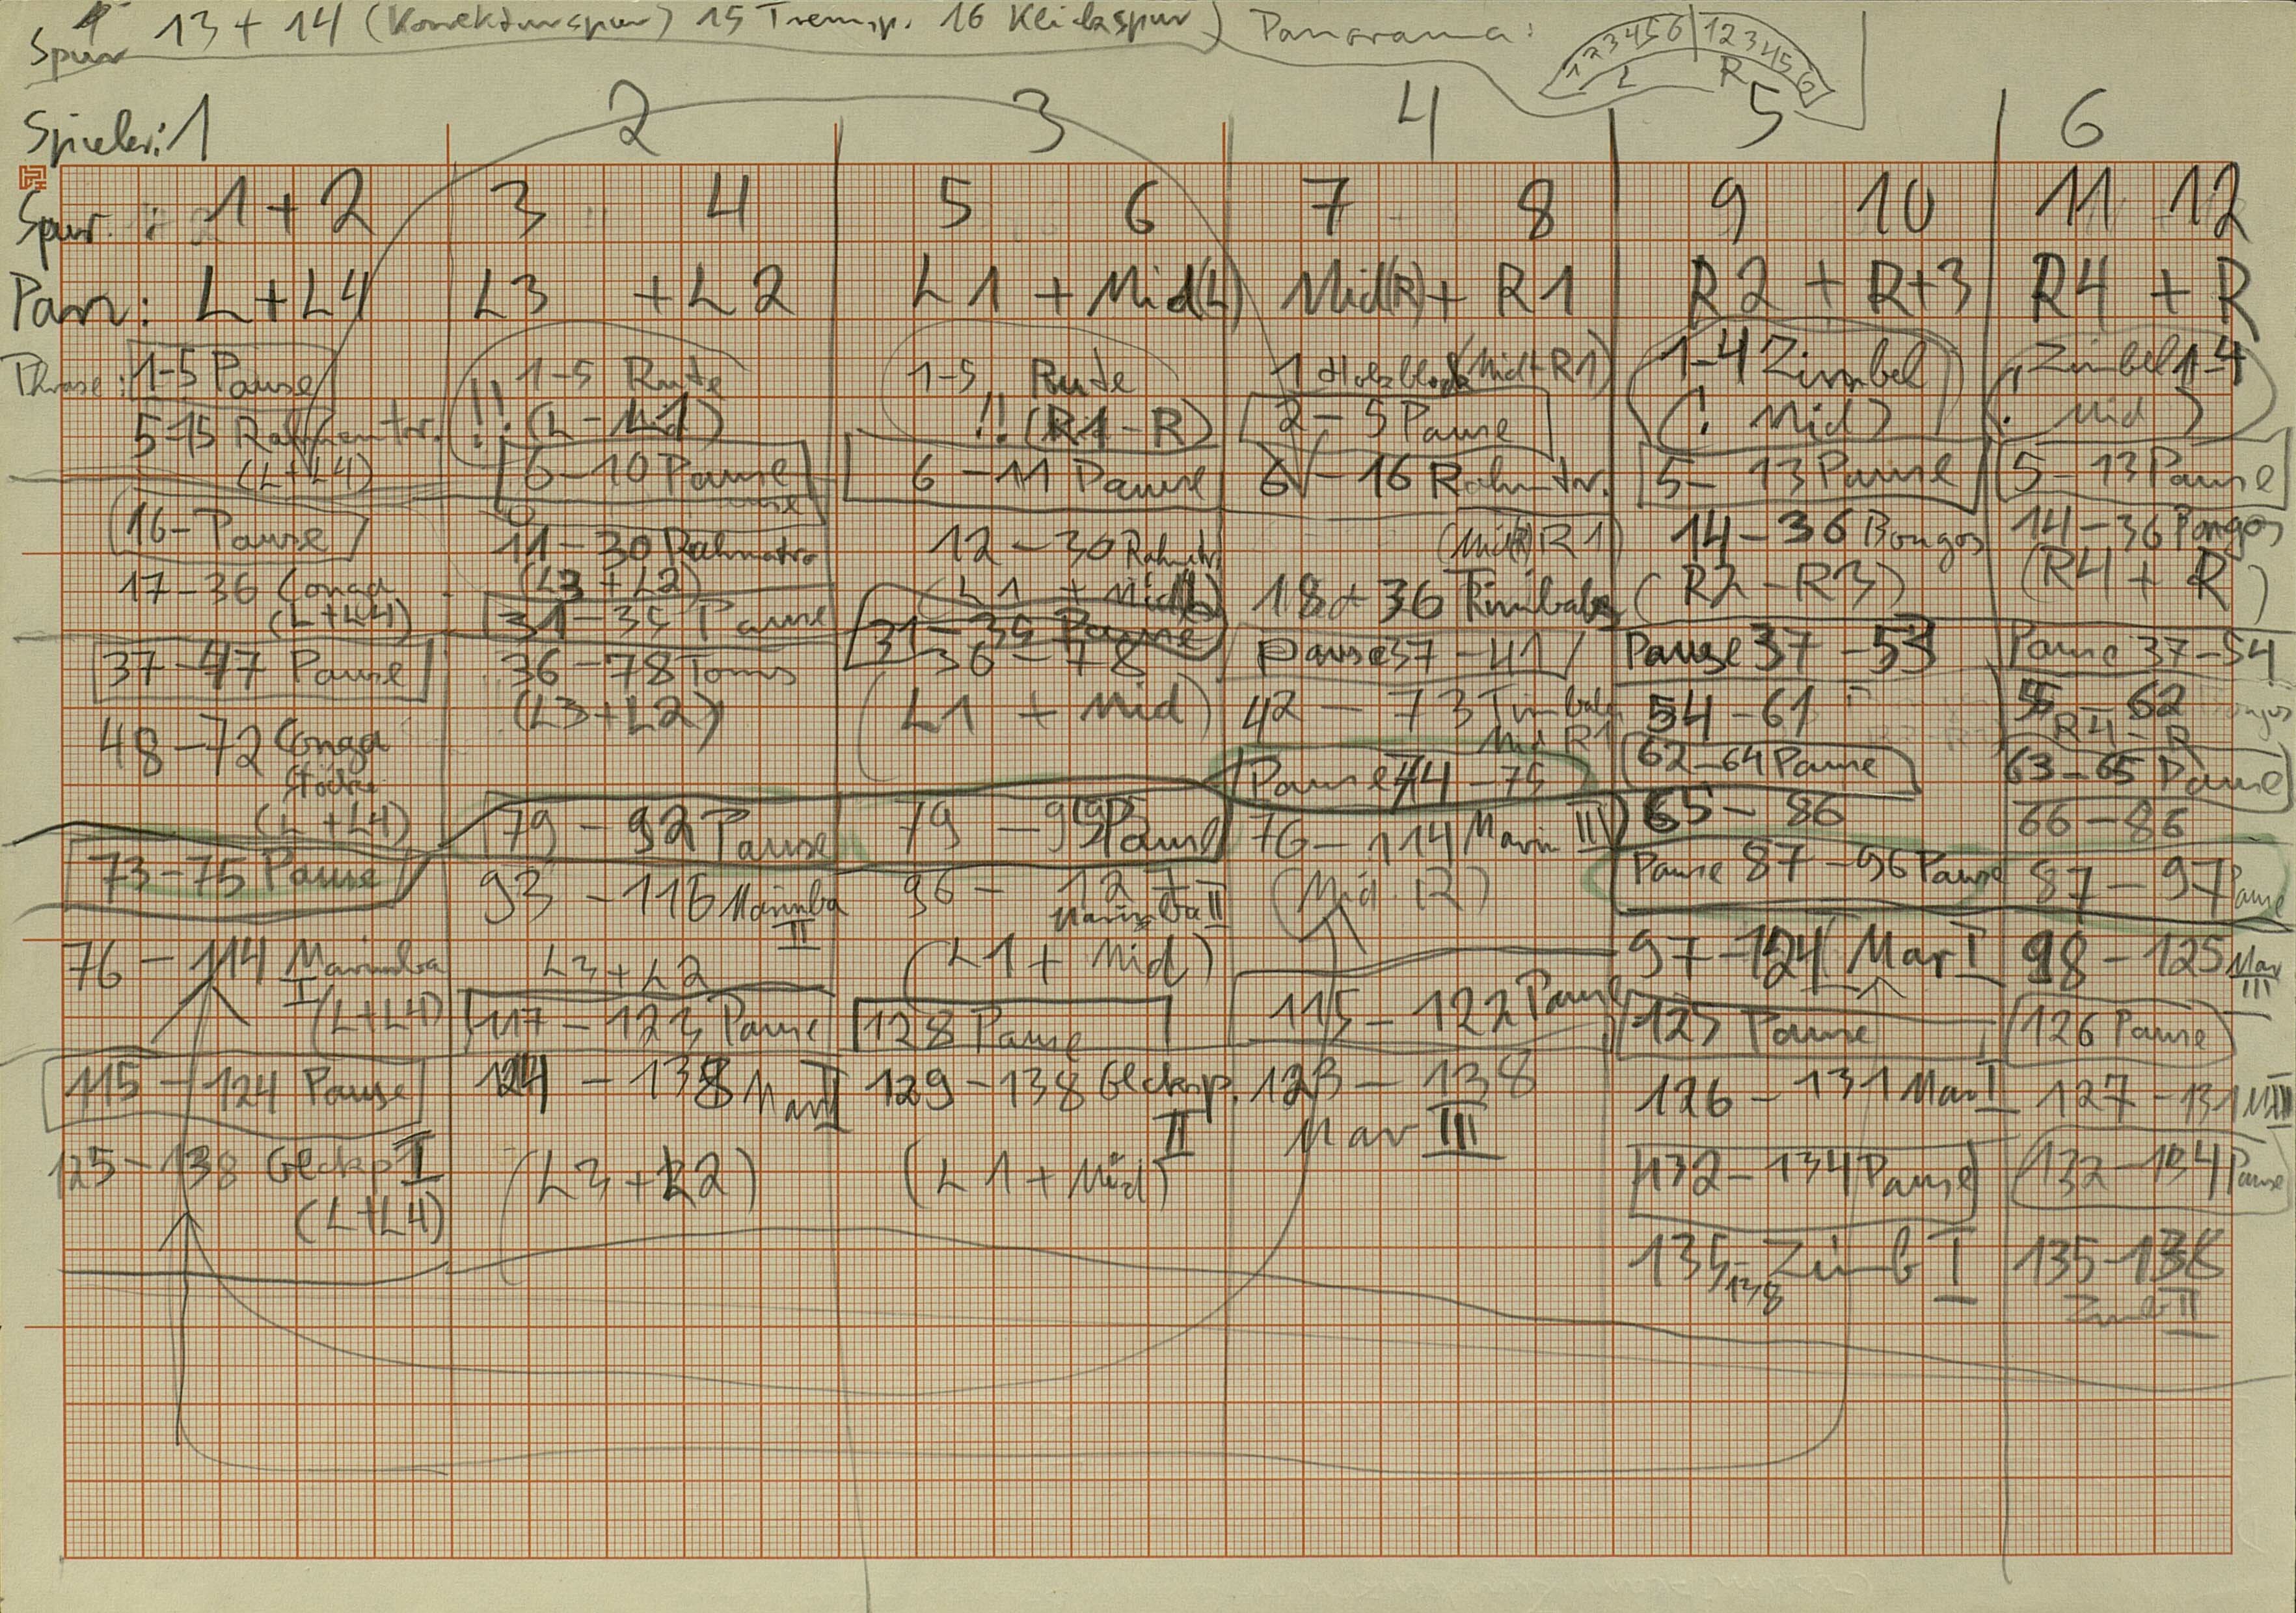 Spur 13 + 14 (Korrekturspur) 15 16 Klickspur) Panorama:
1 2 3 4 5 6 | 1 2 3 4 5 6
L R
Spieler: 1 2 3 4 5 6
Spur: 1 + 2 3 4 5 6 7 8 9 10 11 12
Pan: L + L4 L3 + L2 L1 + Mid(L) Mid(R) + R1 R2 + R+3 R4 + R
Phrase: 1-5 Pause
5-15
(L+L4)
16- Pause
17-36 Conga
(L+L4)
37-47 Pause
48-72 Conga
Stöcke
(L+L4)
73-75 Pause
76-114 Marimba
I
(L+L4)
115-124 Pause
125-138 Glcksp I
(L+L4)
1-5 Rute
!! (L-
6-10 Pause
11-30 Rahmtro
(L3+L2)
31-35 Pause
36-78 Toms
(L3+L2)
79-92 Pause
93-116 Marimba
II
L3+L2
117-123 Pause
124-138 Mar II
(L3+L2)
1-5 Rute
!! (R1-R)
6-11 Pause
12-30 Rahmtr.
(L1 + Mid)
31-35 Pause
36-78
(L1 + Mid)
79-95 Pause
96-127
Marimba II
(L1 + Mid)
128 Pause
129-138 Glcksp.
II
(L1 + Mid)
1 Holzblock (Mid+R1)
2-5 Pause
6-16 Rahmtr.
(Mid(R) R1)
18-36 Timbales
Pause 37-41
42-73 Timbales
Mid R1
Pause 74-75
76-114 Marim III
(Mid. R)
115-122 Pause
123-138
Mar III
1-4 Zimbel
(! Mid)
5-13 Pause
14-36 Bongos
(R2-R3)
Pause 37-53
54-61
62-64 Pause
65-86
Pause 87-96 Pause
97-124 Mar I
125 Pause
126-131 Mar I
132-134 Pause
135-138 Zimb I
Zimbel 1-4
(! Mid)
5-13 Pause
14-36 Bongos
(R4 + R)
Pause 37-54
55-62 Bongos
R4-R
63-65 Pause
66-86
87-97 Pause
98-125 Mar
III
126 Pause
127-131 M III
132-134 Pause
135-138
Zimb II